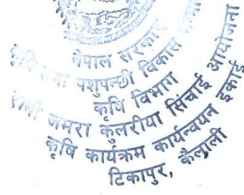 नेपाल सरकार
कृषि तथा पशुपन्छी विकास
कृषि विभाग
रानी जमरा कुलरीया सिंचाई आयोजना
कृषि कार्यक्रम कार्यन्वयन इकाई
टिकापुर, कैलाली